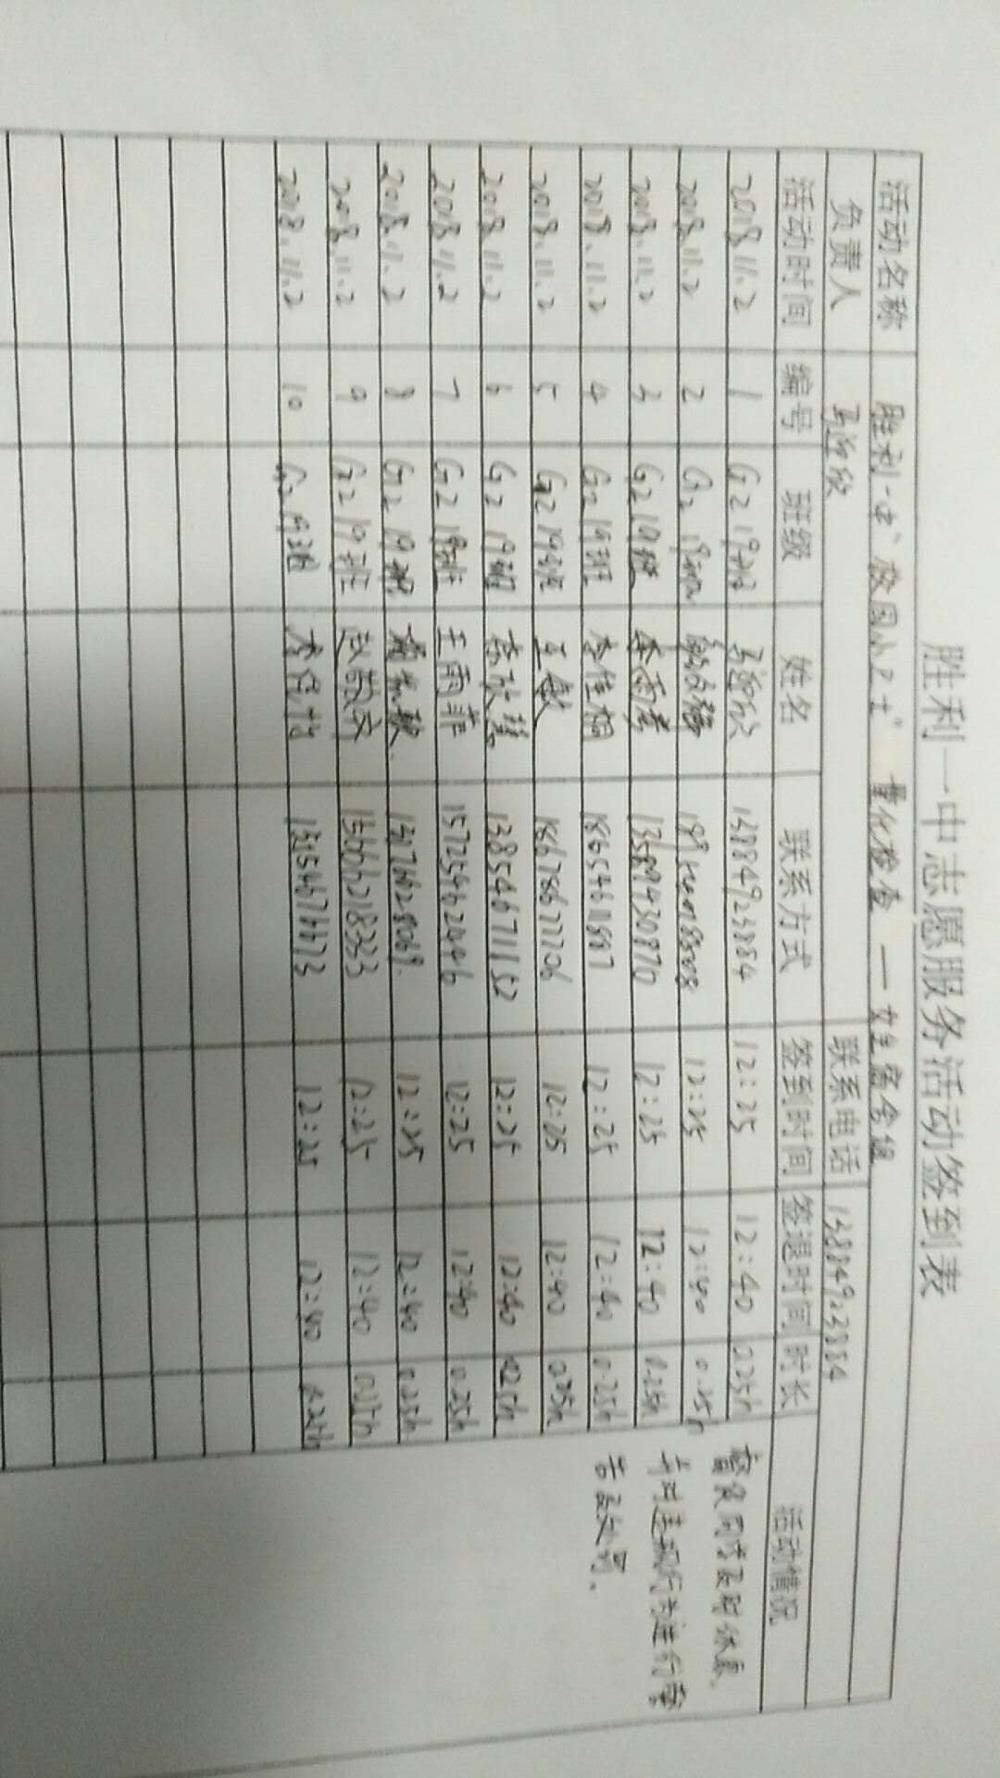 胜利一中志愿服务活动签到表
活动名称 胜利一中"校园小卫士" 量化检查 一 女生宿舍组
负责人 马迎欣 联系电话 13884923884
活动时间 编号 班级 姓名 联系方式 签到时间 签退时间 时长 活动情况
2018.11.2 1 G2 19班 马迎欣 13884923884 12:25 12:40 0.25h
2018.11.2 2 G2 19班 12:25 12:40 0.25h
2018.11.2 3 G2 19班 李雨 13589430870 12:25 12:40 0.25h
2018.11.2 4 G2 19班 李佳桐 12:25 12:40 0.25h
2018.11.2 5 G2 19班 王敏 18678677206 12:25 12:40 0.25h
2018.11.2 6 G2 19班 13854671152 12:25 12:40 0.25h
2018.11.2 7 G2 19班 王雨菲 15725462446 12:25 12:40 0.25h
2018.11.2 8 G2 19班 12:25 12:40 0.25h
2018.11.2 9 G2 19班 赵敬齐 15666218333 12:25 12:40 0.25h
2018.11.2 10 G2 19班 12:25 12:40 0.25h
督促同学及时休息,
并对违规行为进行警
告及处罚.